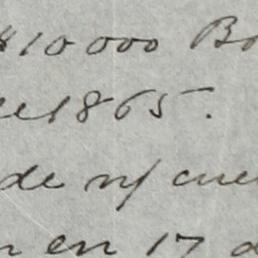 $10000 Bo
1865.
de n/ cue
en 17 d